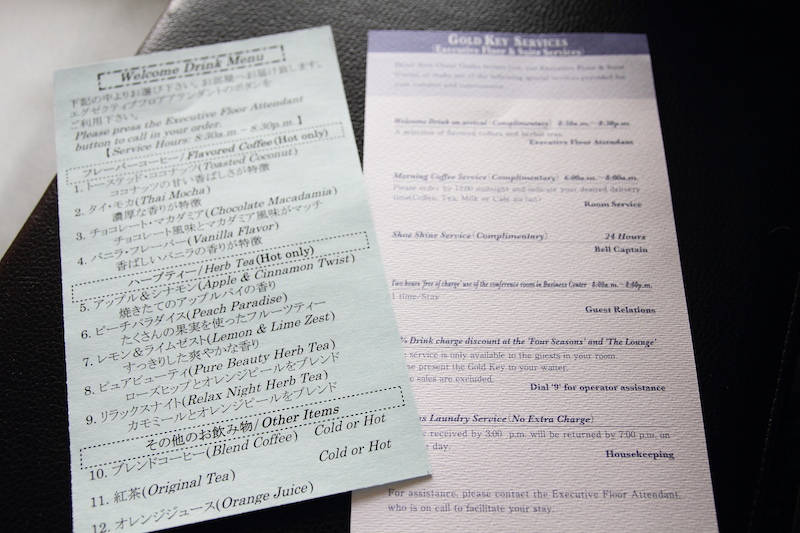 Welcome Drink Menu
下記の中よりお選び下さい。お部屋へお届け致します。
エグゼクティブフロアアテンダントのボタンを
ご利用下さい。
Please press the Executive Floor Attendant
button to call in your order.
【Service Hours: 8:30a.m. ~ 8:30p.m. 】
フレーバーコーヒー/ Flavored Coffee(Hot only)
1. トーステッド・ココナッツ(Toasted Coconut)
ココナッツの甘い香ばしさが特徴
2. タイ・モカ(Thai Mocha)
濃厚な香りが特徴
3. チョコレート・マカダミア(Chocolate Macadamia)
チョコレート風味とマカダミア風味がマッチ
4. バニラ・フレーバー(Vanilla Flavor)
香ばしいバニラの香りが特徴
ハーブティー/ Herb Tea(Hot only)
5. アップル&シナモン(Apple & Cinnamon Twist)
焼きたてのアップルパイの香り
6. ピーチパラダイス(Peach Paradise)
たくさんの果実を使ったフルーツティー
7. レモン&ライムゼスト(Lemon & Lime Zest)
すっきりした爽やかな香り
8. ピュアビューティ(Pure Beauty Herb Tea)
ローズヒップとオレンジピールをブレンド
9. リラックスナイト(Relax Night Herb Tea)
カモミールとオレンジピールをブレンド
その他のお飲み物/ Other Items
10. ブレンドコーヒー(Blend Coffee) Cold or Hot
11. 紅茶(Original Tea) Cold or Hot
12. オレンジジュース(Orange Juice)
GOLD KEY SERVICES
(Executive Floor & Suite Services)
Welcome Drink on arrival (Complimentary) 8:30a.m. ~ 8:30p.m.
A selection of flavored coffees and herbal teas.
Executive Floor Attendant
Morning Coffee Service(Complimentary) 6:00a.m. ~ 8:00a.m.
Please order by 12:00 midnight and indicate your desired delivery
time(Coffee, Tea, Milk or Café au lait)
Room Service
Shoe Shine Service(Complimentary) 24 Hours
Bell Captain
Two hours 'free of charge' use of the conference room in Business Center 8:00a.m. ~ 8:00p.m.
1 time/Stay
Guest Relations
% Drink charge discount at the 'Four Seasons' and 'The Lounge'
service is only available to the guests in your room.
present the Gold Key to your waiter.
sales are excluded.
Dial '9' for operator assistance
Laundry Service(No Extra Charge)
received by 3:00 p.m. will be returned by 7:00 p.m. on
day.
Housekeeping
For assistance, please contact the Executive Floor Attendant,
who is on call to facilitate your stay.